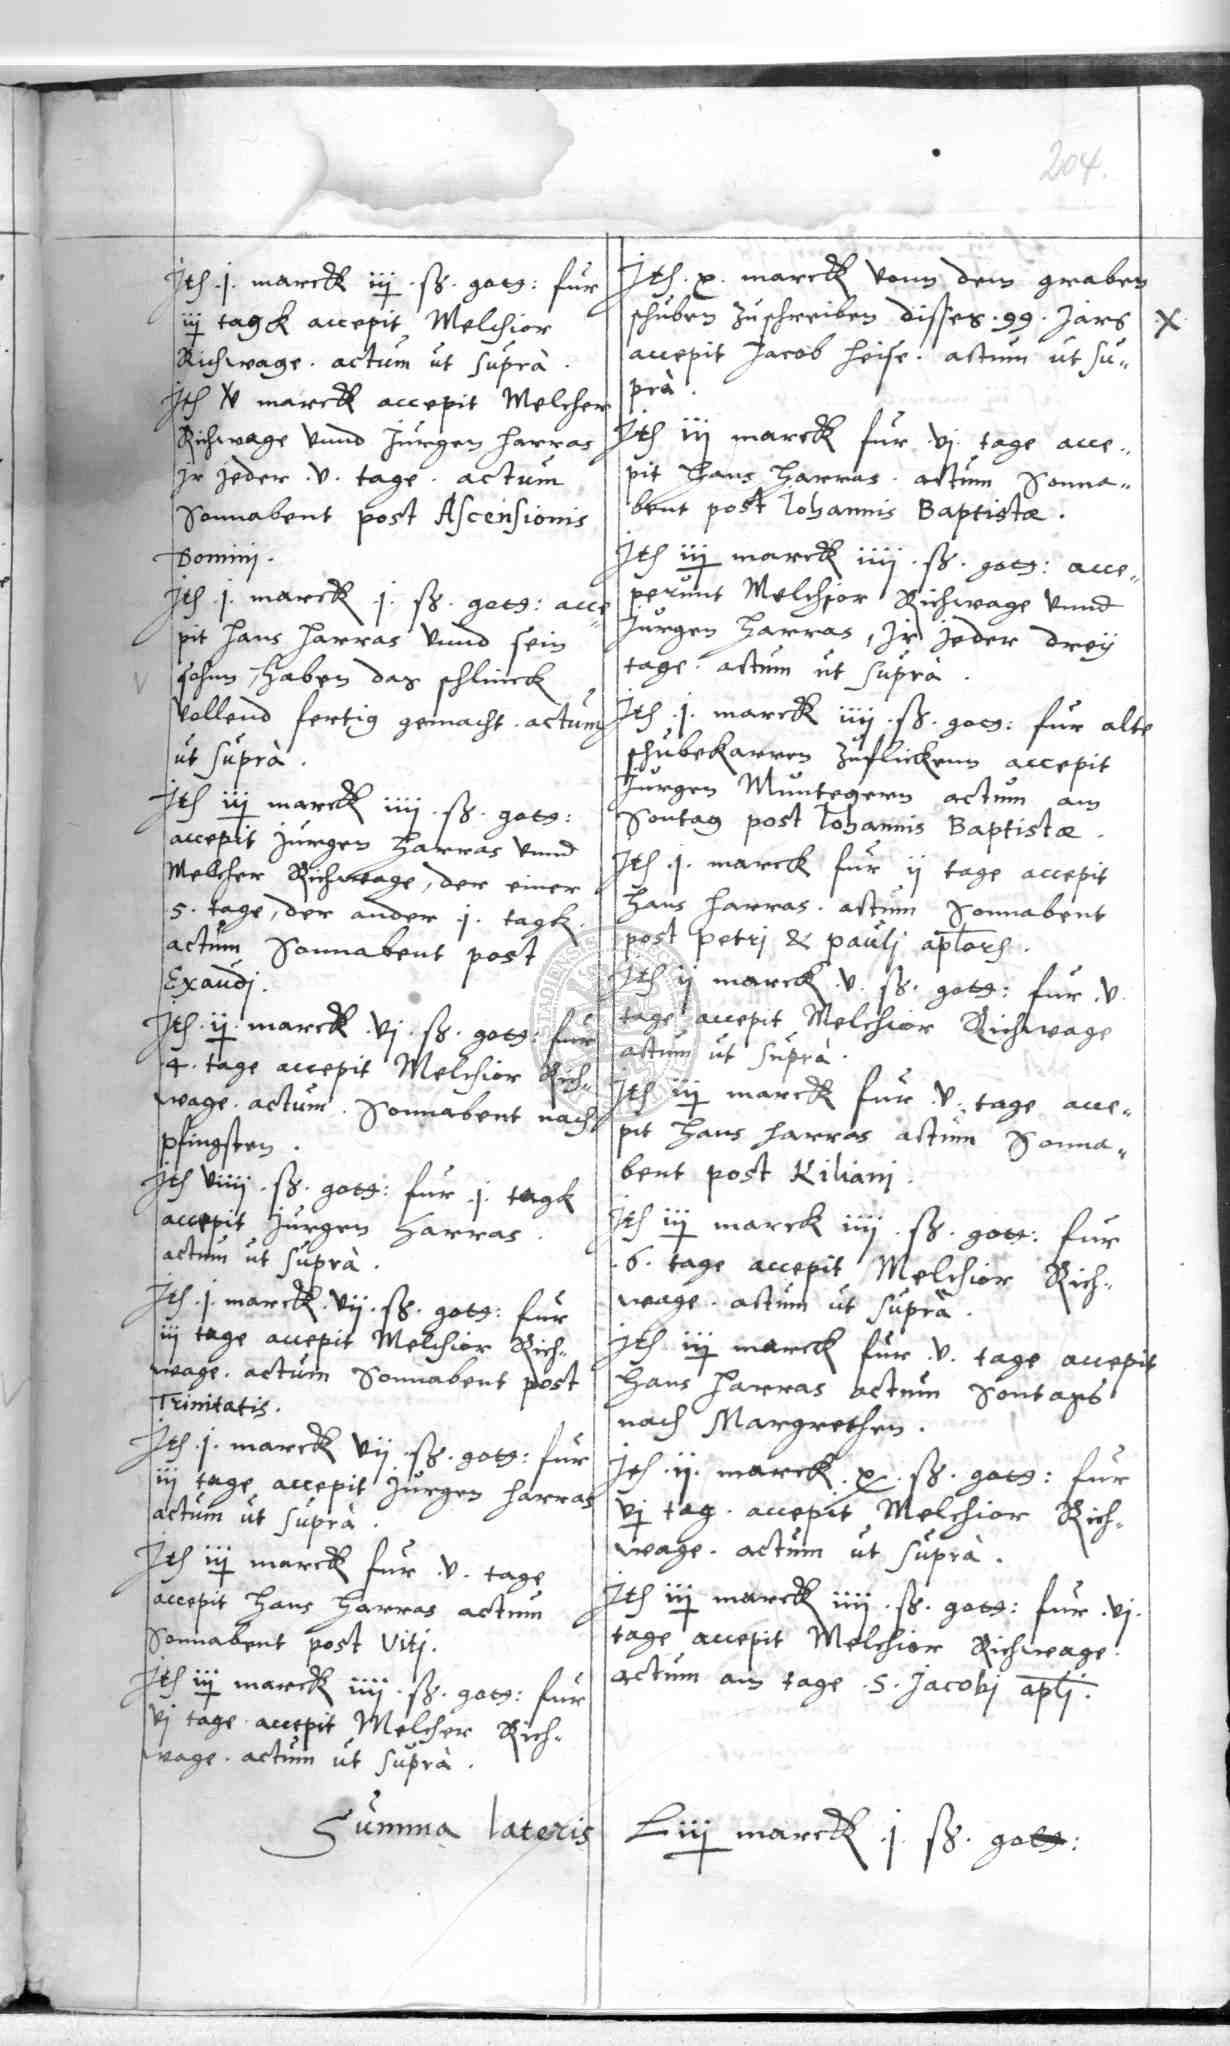 204.
Jtē .j. marck iij. sß. gorß: fur
iij tagk accepit Melchior
Richwage. actum ut suprà.
Jtē V marck accepit Melcher
Richwage vnnd Jurgen Harras
Jr Jeder .v. tage. actum
Sonnabent post Ascensionis
Dominj.
Jtē .j. marck .j. sß. gorß: acce„
pit Hans Harras vnnd sein
sohnn, haben das schlinck
vollend fertig gemacht. actum
ut suprà.
Jtē iij marck iiij. sß. gorß:
accepit Jurgen Harras vnnd
Melcher Richwage, der einer
5. tage, der ander .j. tagk.
actum Sonnabent post
Exaudj.
Jtē .ij. marck .vj. sß. gorß: fur
.4. tage accepit Melchior Rich„
wage. actum. Sonnabent nach
pfingsten.
Jtē viiij. sß. gorß: fur .j. tagk
accepit Jurgen Harras.
actum ut suprà.
Jtē .j. marck .vij. sß. gorß: fur
iij tage accepit Melchior Rich„
wage. actum Sonnabent post
Trinitatis.
Jtē .j. marck vij. sß. gorß: fur
iij tage accepit Jurgen Harras
actum ut suprà.
Jtē iij marck fur .v. tage
accepit Hans Harras actum
Sonnabent post Vitj.
Jtē iij marck iiij. sß. gorß: fur
vj tage accepit Melcher Rich„
wage. actum ut suprà.
Jtē .x. marck vonn dem graben
schuben zuschreiben disses .99. Jars X
accepit Jacob Heise. actum ut su„
prà.
Jtē iij marck fur .vj. tage acce„
pit Hans Harras. actum Sonna„
bent post Iohannis Baptistæ.
Jtē iij marck iiij. sß. gorß: acce„
perunt Melchior Richwage vnnd
Jurgen Harras, Jr Jeder dreÿ
tage. actum ut suprà.
Jtē .j. marck iiij. sß. gorß: fur alte
schubekarren zuflickenn accepit
Jurgen Muntegern actum am
Sontag post Iohannis Baptistæ.
Jtē .j. marck fur ij tage accepit
Hans Harras. actum Sonnabent
post Petrj & Paulj aplorē.
Jtē ij marck .v. sß. gorß: fur .v.
tage accepit Melchior Richwage
actum ut suprà.
Jtē iij marck fur .v. tage acce„
pit Hans Harras actum Sonna„
bent post Kilianj.
Jtē iij marck iiij. sß. gorß: fur
.6. tage accepit Melchior Rich„
wage. actum ut suprà.
Jtē iij marck fur .v. tage accepit
Hans Harras actum Sontags
nach Margrethen.
Jtē .ij. marck .x. sß. gorß: fur
vj tag. accepit Melchior Rich„
wage. actum ut suprà.
Jtē iij marck iiij. sß. gorß: fur .vj.
tage accepit Melchior Richwage.
actum am tage .S. Jacobj aplj.
Summa lateris Liij marck .j. sß. gorß: